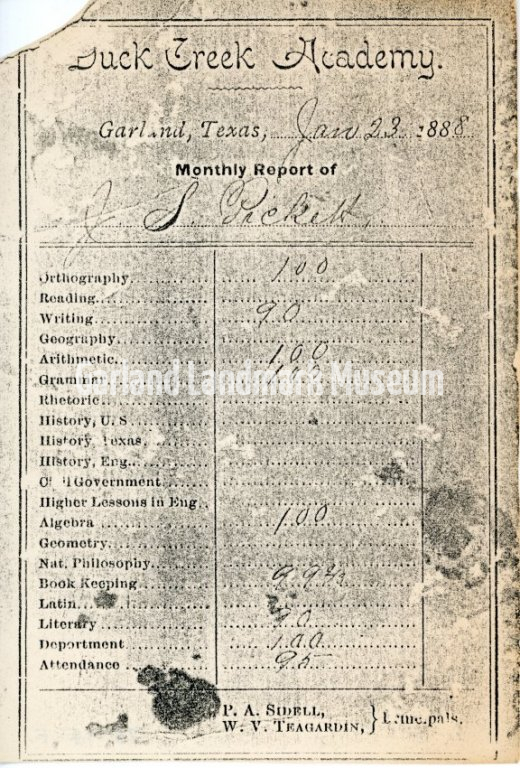 Duck Creek Academy.
Garland, Texas, Jan 23 1888
Monthly Report of
J. S. Pickett,
Orthography 100
Reading
Writing 90
Geography
Arithmetic 100
Grammar 100
Rhetoric
History, U. S
History, Texas,
History, Eng.
Civil Government
Higher Lessons in Eng.
Algebra 100
Geometry
Nat. Philosophy
Book Keeping 99½
Latin
Literary 90
Deportment 100
Attendance 95
P. A. Sidell,
W. V. Teagardin, } Principals.
Garland Landmark Museum